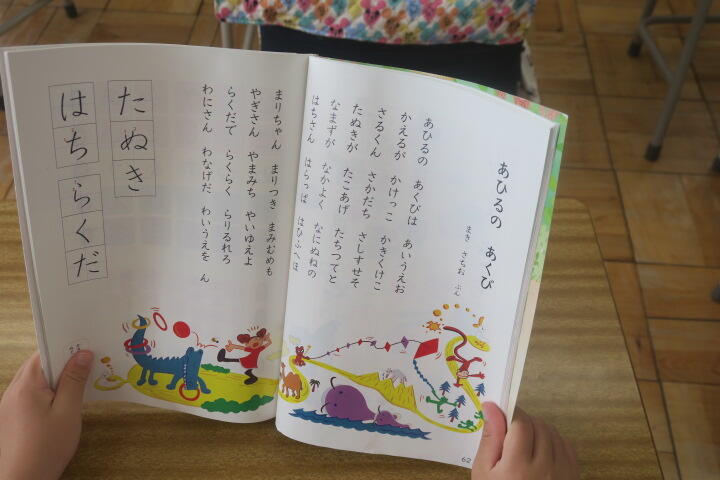 あひるの あくび
まき さちお ぶん
あひるの あくびは あいうえお
かえるが かけっこ かきくけこ
さるくん さかだち さしすせそ
たぬきが たこあげ たちつてと
なまずが なかよく なにぬねの
はちさん はらっぱ はひふへほ
まりちゃん まりつき まみむめも
やぎさん やまみち やいゆえよ
らくだで らくらく らりるれろ
わにさん わなげだ わいうえを ん
たぬき
はち らくだ
62